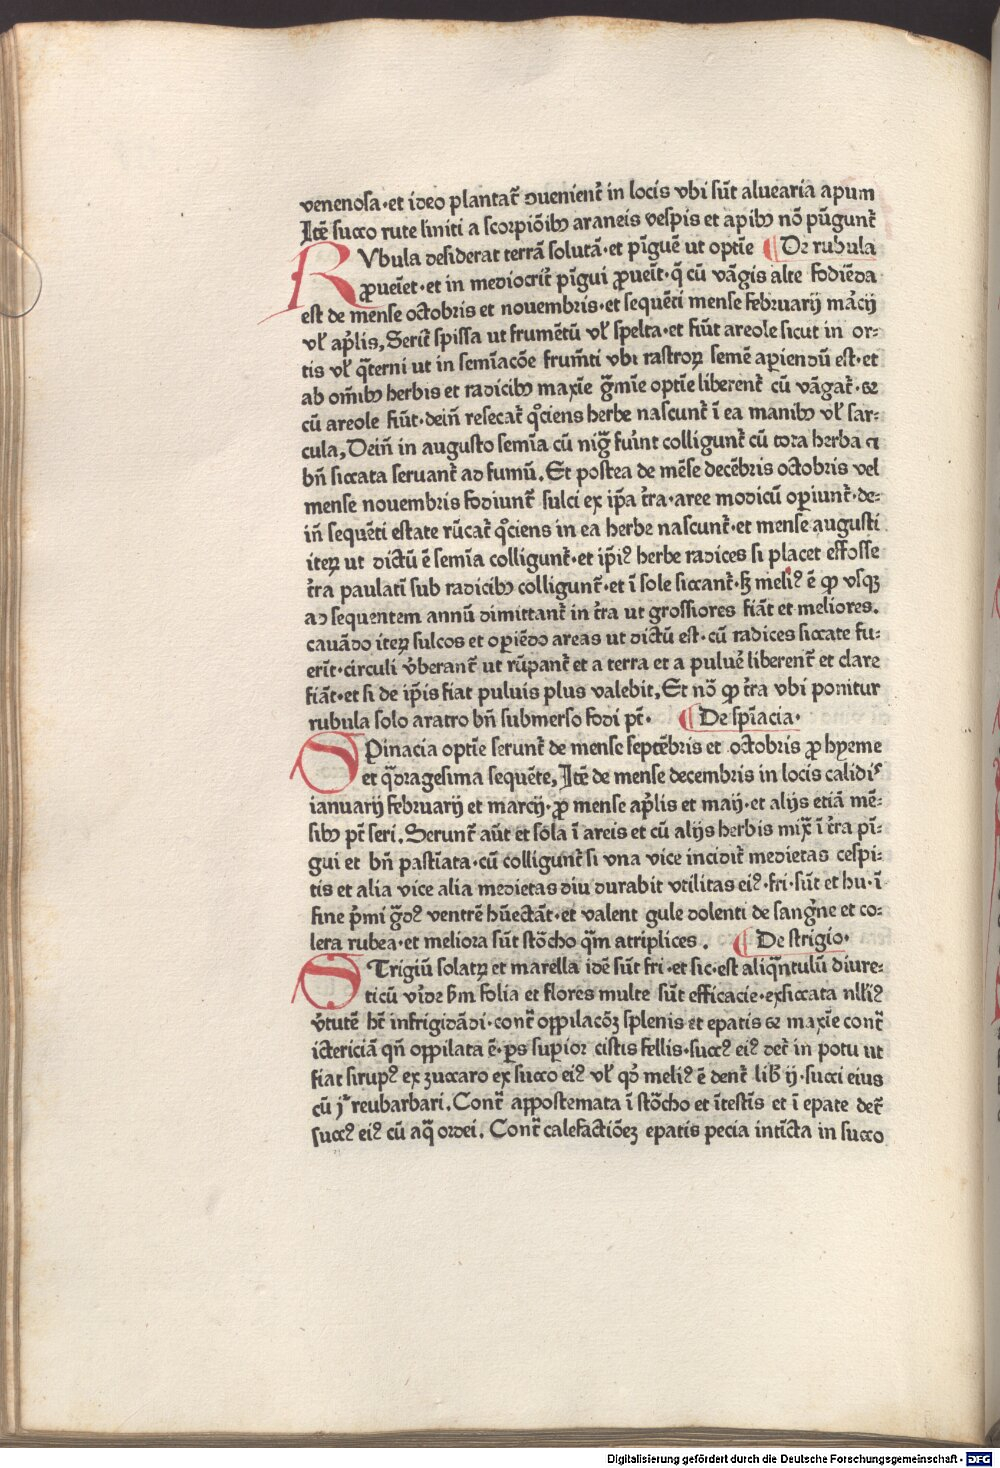 venenosa·et ideo plantat᷑ ↄuenient᷑ in locis vbi sūt aluearia apum
Itē succo rute liniti a scorpiōibꝰ araneis vespis et apibꝰ nō pūgunt᷑
RVbula desiderat terrā solutā·et pīguē ut optīe ¶De rubula
ꝓueīet·et in mediocrit᷑ pīgui ꝓueīt·q̄ cū vāgis alte fodiēda
est de mense octobris et nouembris·et sequēti mense februarij marcij
vl̕ ap̄lis, Serit᷑ spissa ut frumētū vl̕ spelta·et fiūt areole sicut in or⸗
tis vl̕ q̄terni ut in semīacōe frum̄ti vbi rastroꝝ semē aperiendū est·et
ab om̄ibꝰ herbis et radicibꝰ maxīe g̃mīe optīe liberent᷑ cū vāgat᷑·⁊
cū areole fiūt·dein̄ resecat᷑ qͦciens herbe nascunt᷑ ī ea manibꝰ vl̕ sar⸗
cula, Dein̄ in augusto semīa cū nig̃ fuīnt colligunt᷑ cū tota herba ⁊
bn̄ siccata seruant᷑ ad fumū. Et postea de mēse decēbris octobris vel
mense nouembris fodiunt᷑ sulci ex ip̄a t̄ra·aree modicū operiunt᷑·de⸗
in̄ sequēti estate rūcat᷑ qͦciens in ea herbe nascunt᷑·et mense augusti
iteꝝ ut dictū ē semīa colligunt᷑·et ip̄iꝰ herbe radices si placet effosse
t̄ra paulatī sub radicibꝰ colligunt᷑·et ī sole siccant᷑·ꝫ meliꝰ ē ꝙ vsqꝫ
ad sequentem annū dimittant᷑ in t̄ra ut grossiores fiāt et meliores.
cauādo iteꝝ sulcos et operiēdo areas ut dictū est·cū radices siccate fu⸗
erīt·circuli v̄berant᷑ ut rūpant᷑ et a terra et a puluē liberent᷑ et clare
fiāt·et si de ip̄is fiat puluis plus valebit, Et nō ꝙ t̄ra vbi ponitur
rubula solo aratro bn̄ submerso fodi pt̄· ¶De spīacia·
SPinacia optīe serunt᷑ de mense septēbris et octobris ꝓ hyeme
et q̄dragesima sequēte, Itē de mense decembris in locis calidiˢ
ianuarij februarij et marcij·ꝓ mense ap̄lis et maij·et alijs etiā mē⸗
sibꝰ pt̄ seri. Serunt᷑ aūt et sola ī areis et cū alijs herbis mix̄ ī t̄ra pī⸗
gui et bn̄ pastīata·cū colligunt᷑ si vna vice incidit᷑ medietas cespi⸗
tis et alia vice alia medietas diu durabit vtilitas eiꝰ·fri·sūt et hu·ī
fine p̄mi g̃dꝰ ventrē hūectāt·et valent gule dolenti de sang̃ne et co⸗
lera rubea·et meliora sūt stōcho q̄m atriplices. ¶De strigio·
STrigiū solatꝝ et marella idē sūt fri·et sic·est aliq̄ntulū diure⸗
ticū vīdꝛ hm̄ folia et flores multe sūt efficacie·exsiccata nll̄iꝰ
v̄tutē ht̄ infrigidādi·cont᷑ oppilacōꝫ splenis et epatis ⁊ maxīe cont᷑
ictericiā qn̄ oppilata ē·ꝑs superior cistis fellis·succꝰ eiꝰ det᷑ in potu ut
fiat sirupꝰ ex zuccaro ex succo eiꝰ vl̕ qͦ meliꝰ ē dent᷑ lib̄ ij·succi eius
cū jˣ reubarbari. Cont᷑ appostemata ī stōcho et ītestīs et ī epate det᷑
succꝰ eiꝰ cū aq̄ ordei. Cont᷑ calefactiōeꝫ epatis pecia intīcta in succo
Digitalisierung gefördert durch die Deutsche Forschungsgemeinschaft · DFG